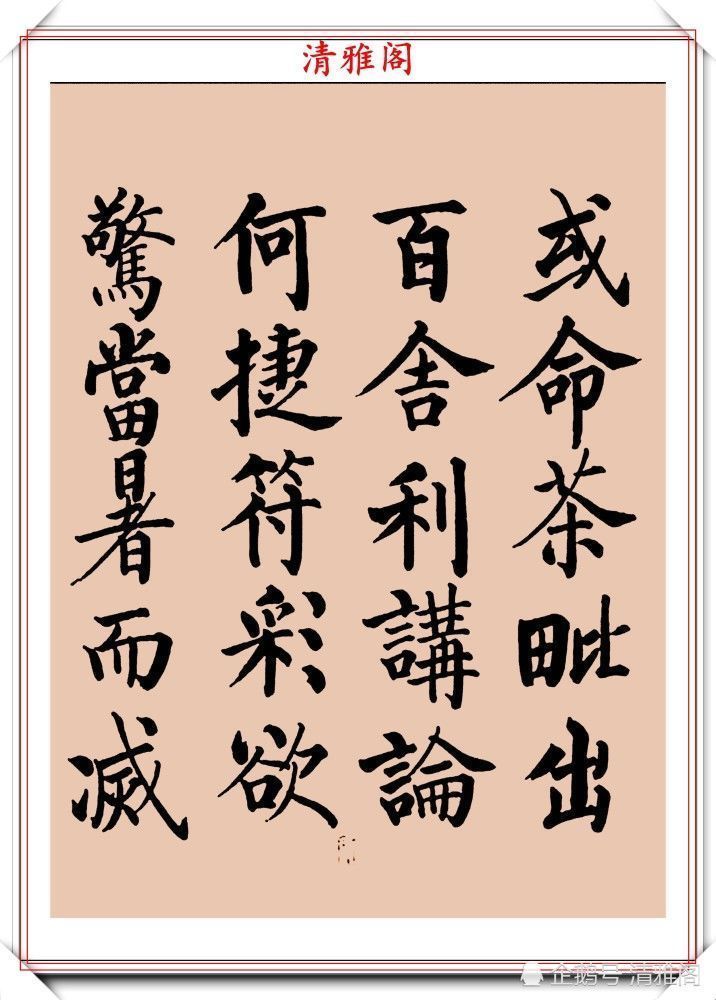 清雅阁
或命茶毗出
百舍利講論
何捷符彩欲
驚當暑而滅
企鹅号 清雅阁